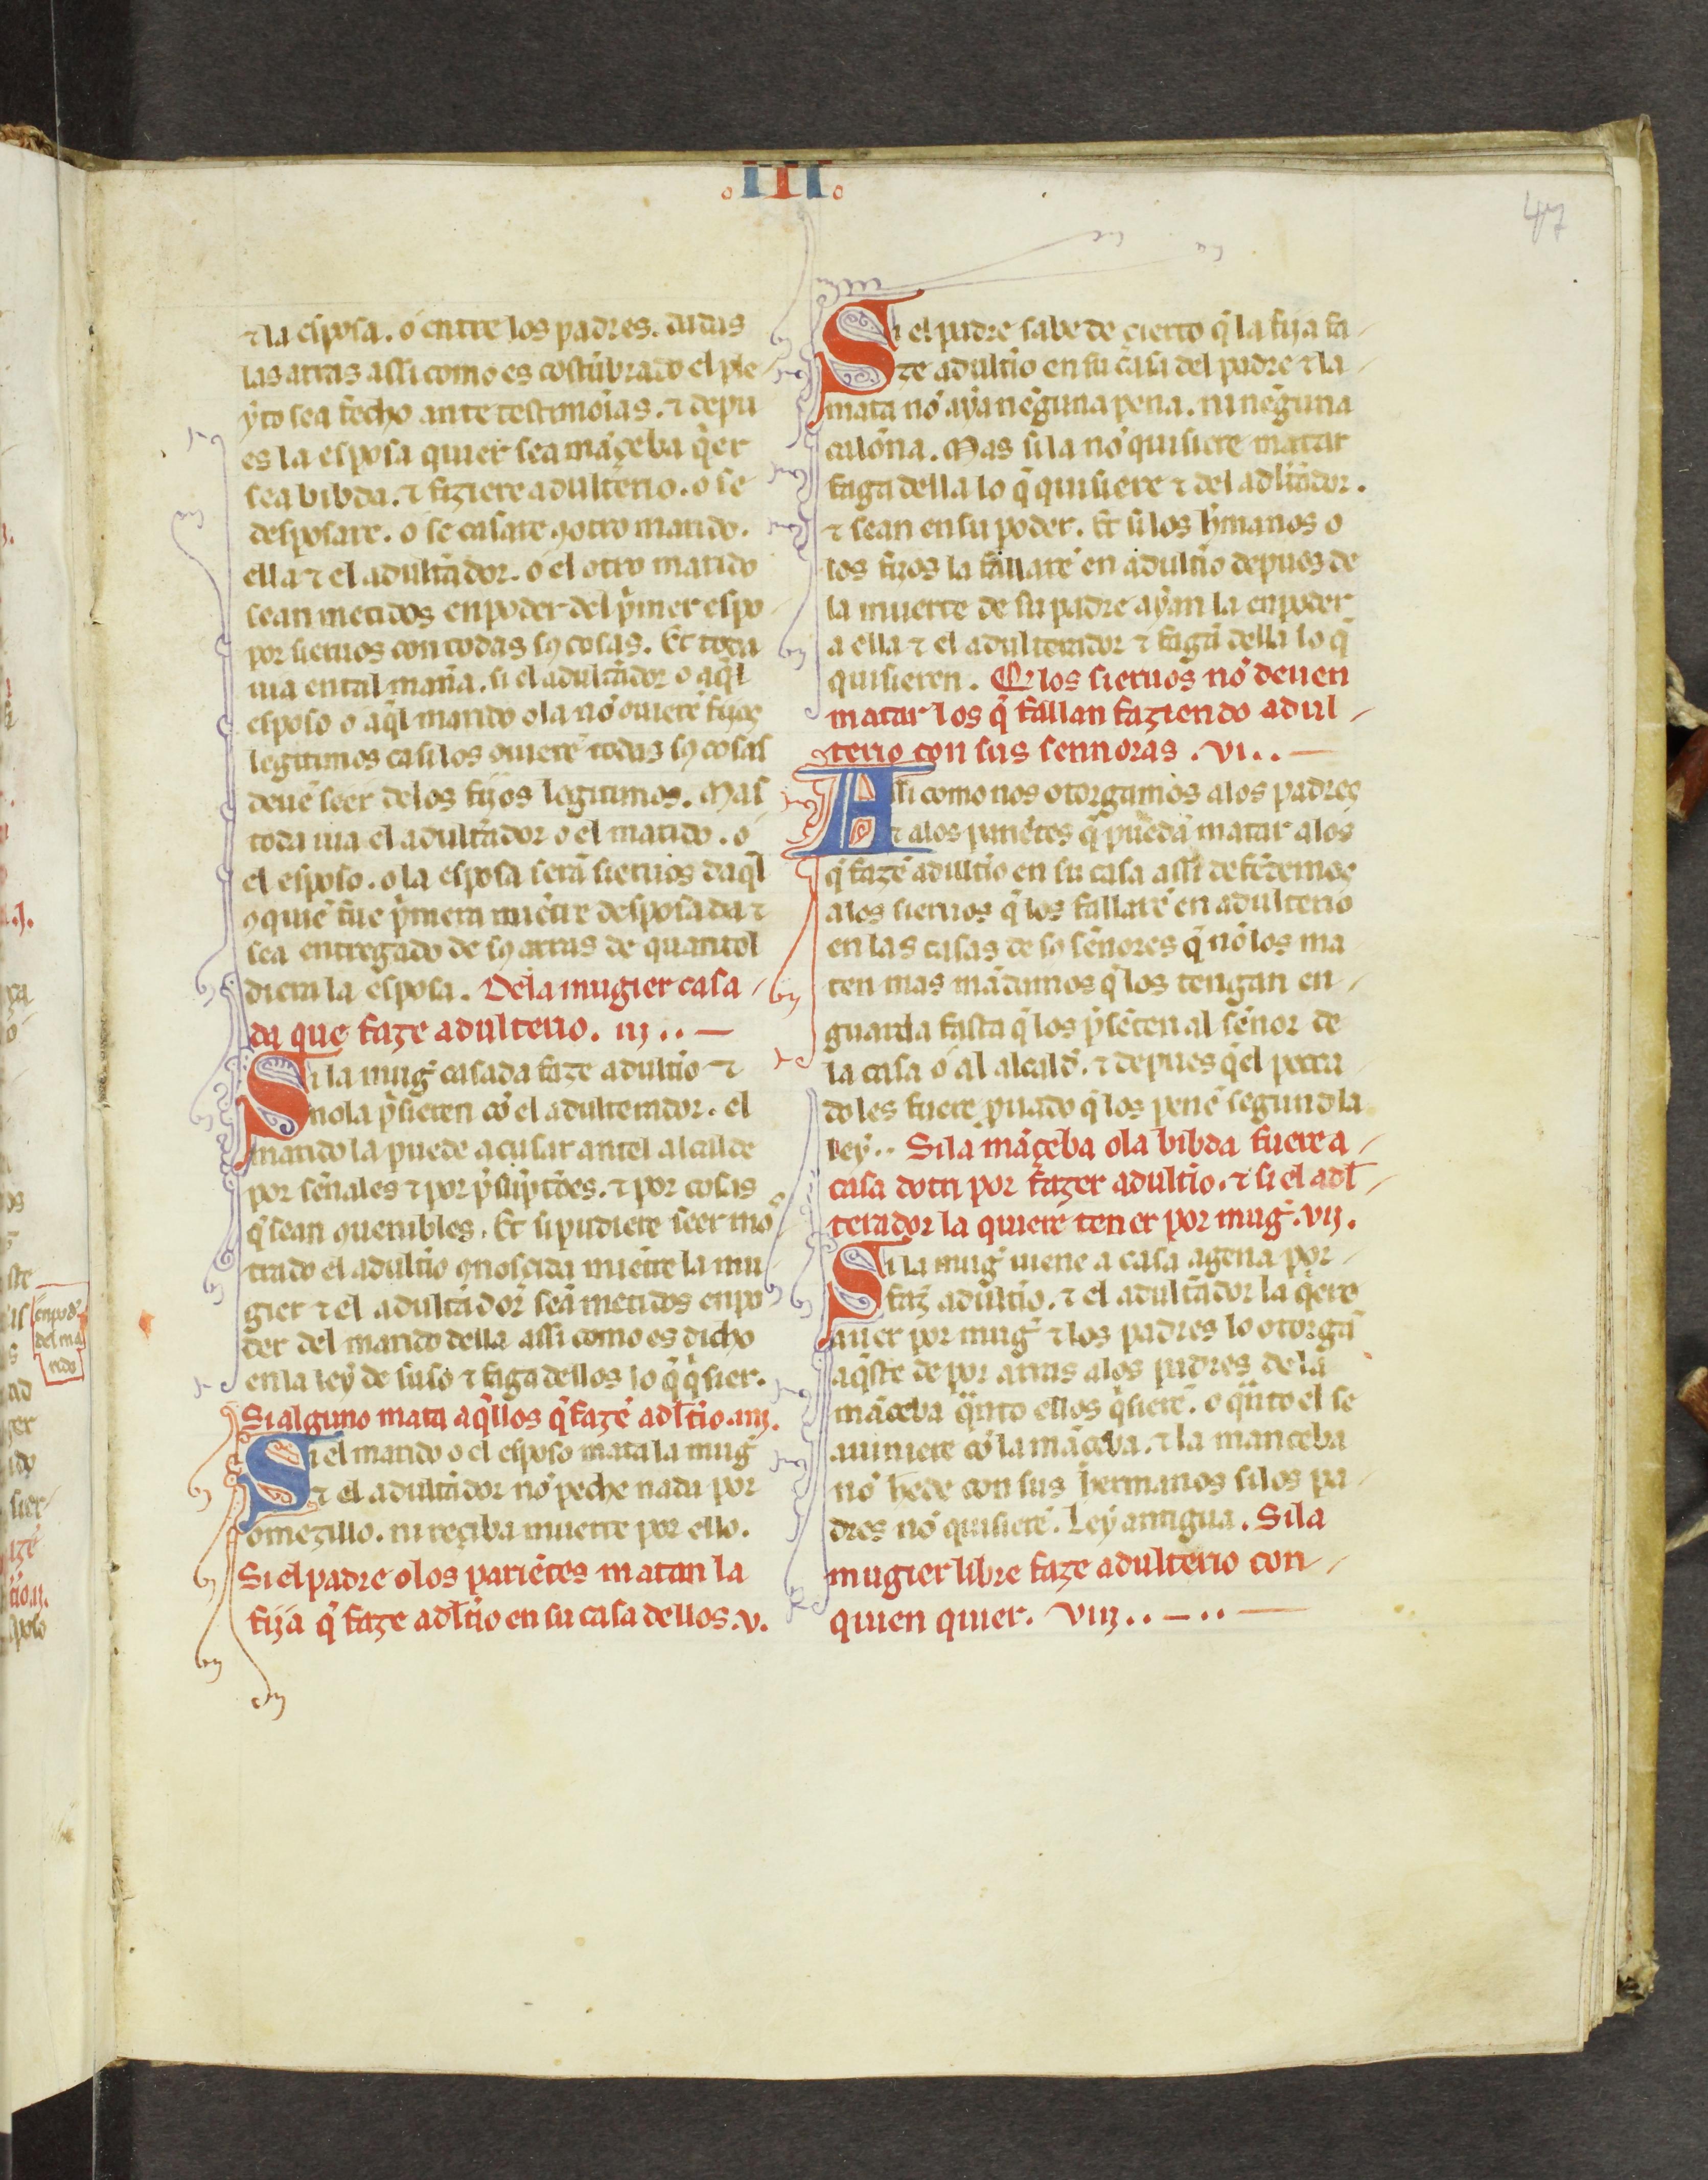 .III.
47
⁊ la esposa. o entre los padres. dadas
las arras assi como es costũbrado el ple
yto sea fecho ante testimonias. ⁊ depu
es la esposa quier sea mãçeba q̃er
sea bibda. ⁊ fiziere adulterio. o se
desposare. o se casare ꝯ otro marido.
ella ⁊ el adult̃ador. o el otro marido
sean metidos en poder del p̃mer espo
por sieruos con todas sꝯ cosas. Et toda
uia en tal mañ̃a. si el adult̃ador o aq̃l
esposo o aq̃l marido o la nõ ouierẽ fijos
legitimos ca si los ouierẽ todas sꝯ cosas
deuẽ seer de los fijos legitimos. Mas
toda uia el adult̃ador o el marido. o
el esposo. o la esposa serã sieruos daq̃l
ꝯ quiẽ fue p̃mera miẽtre desposada ⁊
sea entregado de sꝯ arras de quantol
diera la esposa. De la mugier casa
da que faze adulterio. iij..
Si la mug̃ casada faze adult̃io ⁊
no la p̃sieren cõ el adulterador. el
marido la puede acusar antel alcalde
por señales ⁊ por p̃sũpt̃oes. ⁊ por cosas
q̃ sean ꝯuenibles. Et si pudiere seer mõ
trado el adult̃io ꝯnosçida miẽtre la mu
gier ⁊ el adult̃ador seã metidos en po
der del marido della assi como es dicho
en la ley de suso ⁊ faga dellos lo q̃ q̃sier.
Si alguno mata aq̃llos q̃ fazẽ adl̃tio. iiij.
Si el marido o el esposo mata la mug̃
⁊ el adult̃ador nõ peche nada por
omezillo. ni reçiba muerte por ello.
Si el padre o los pariẽtes matan la
fija q̃ faze adl̃tio en su casa dellos. v.
Si el padre sabe de çierto q̃ la fija fa
ze adult̃io en su casa del padre ⁊ la
mata nõ aya nẽguna pena. ni nẽguna
calõna. Mas si la nõ quisiere matar
faga della lo q̃ quisiere ⁊ del adl̃tador.
⁊ sean en su poder. Et si los h̃manos o
los tios la fallarẽ en adult̃io depues de
la muerte de su padre ayan la en poder
a ella ⁊ el adulterador ⁊ fagã della lo q̃
quisieren. Q̃ los sieruos nõ deuen
matar los q̃ fallan faziendo adul
terio con sus sennoras. vi..
Assi como nos otorgamos a los padres
⁊ a los pariẽtes q̃ puedã matar a los
q̃ fazẽ adult̃io en su casa assi defẽdemos
a los sieruos q̃ los fallarẽ en adulterio
en las casas de sꝯ señores q̃ nõ los ma
ten mas mãdamos q̃ los tengan en
guarda fasta q̃ los p̃sẽten al señor de
la casa o al alcald̃. ⁊ depues q̃l pecca
do les fuere p̃uado q̃ los penẽ segund la
ley.. Si la mãçeba o la bibda fuere a
casa dotri por fazer adult̃io. ⁊ si el adl̃
terador la quiere tener por mug̃. vij.
Si la mug̃ uiene a casa agena por
faz̃ adult̃io. ⁊ el adult̃ador la q̃ere
auer por mug̃ ⁊ los padres lo otorgã
aq̃ste de por arras a los padres de la
mãceba q̃nto ellos q̃sierẽ. o q̃nto el se
auiniere cõ la mãceba. ⁊ la manceba
nõ h̃ede con sus hermanos si los pa
dres nõ quisierẽ. Ley antigua. Si la
mugier libre faze adulterio con
quien quier. viij..
en pod̃
del ma
rido